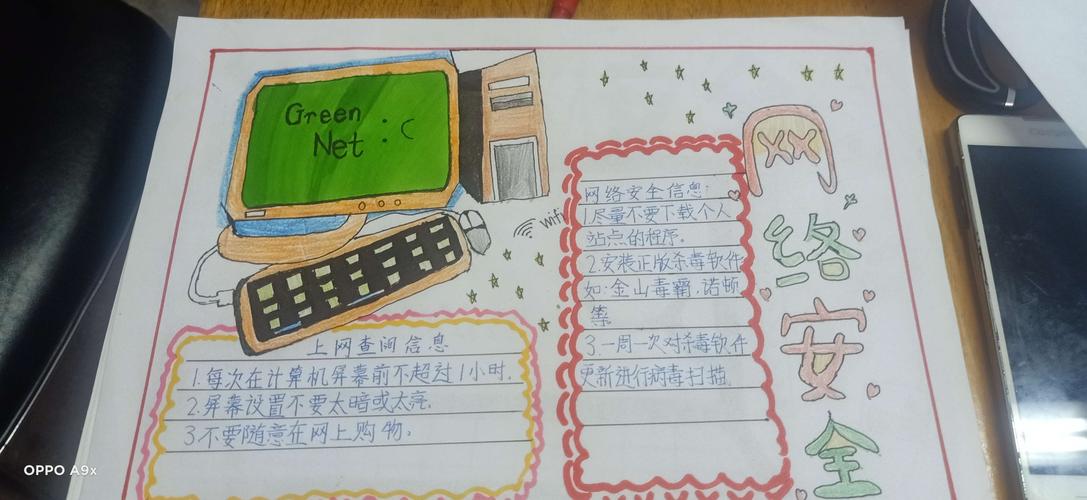 Green
Net :(
wifi
网络安全
网络安全信息:
1.尽量不要下载个人
站点的程序。
2.安装正版杀毒软件
如:金山毒霸.诺顿
等
3.一周一次对杀毒软件
更新进行病毒扫描.
上网查询信息
1.每次在计算机屏幕前不超过1小时.
2.屏幕设置不要太暗或太亮.
3.不要随意在网上购物。
OPPO A9x